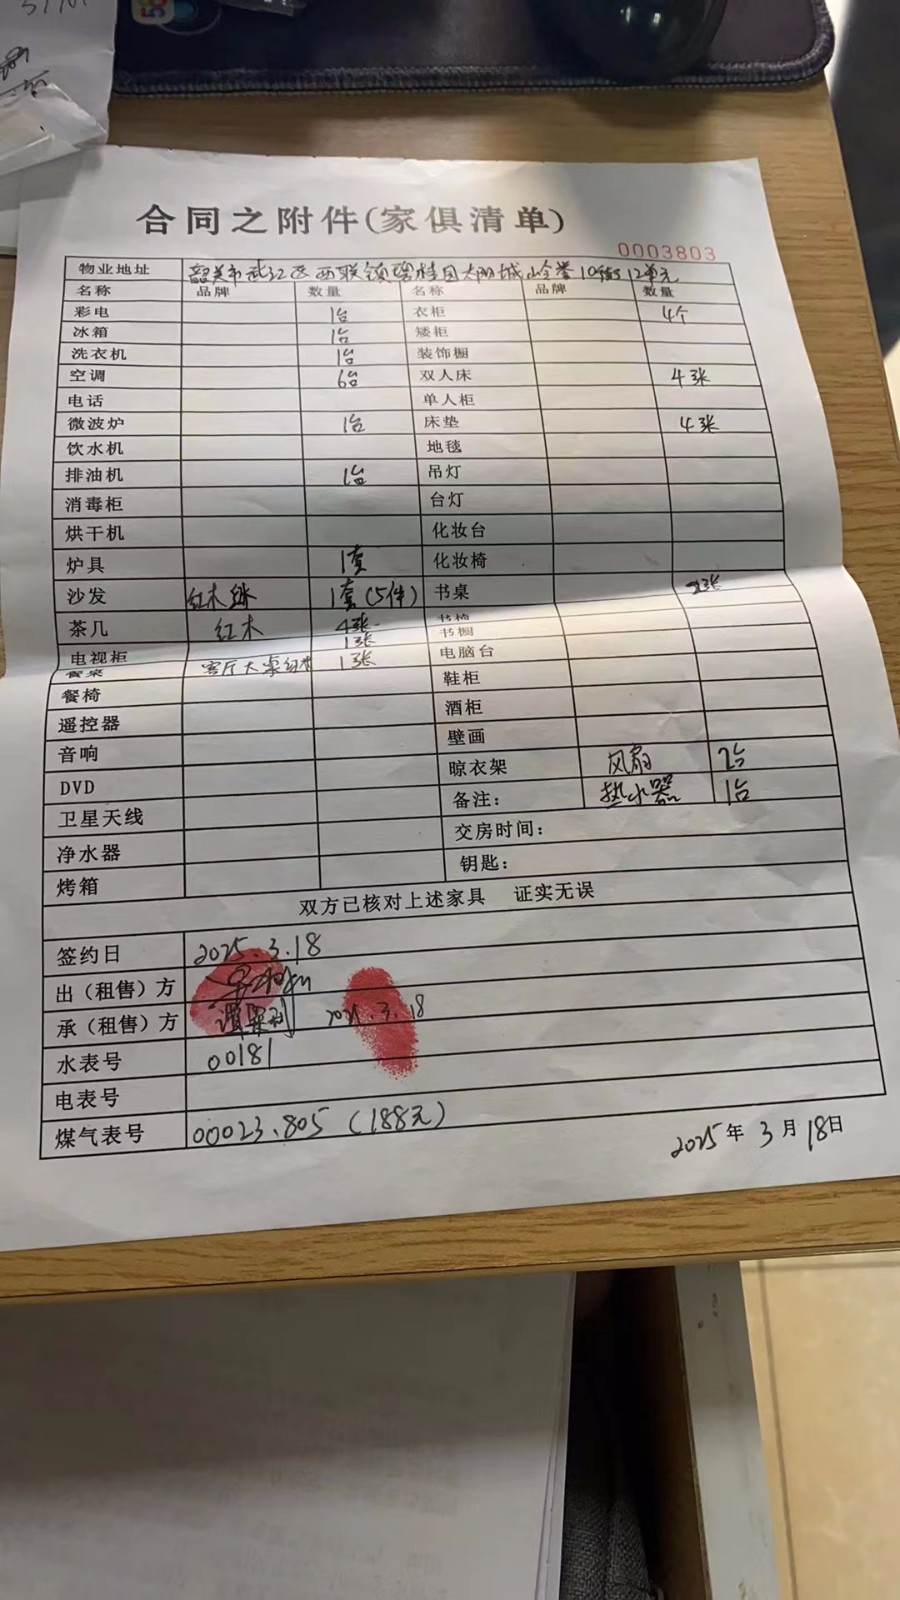 合同之附件(家俱清单)
0003803
物业地址 韶关市武江区西联镇碧桂园太阳城山令誉10街12单元
名称 品牌 数量 名称 品牌 数量
彩电 1台 衣柜 4个
冰箱 1台 矮柜
洗衣机 1台 装饰橱
空调 6台 双人床 4张
电话 单人柜
微波炉 1台 床垫 4张
饮水机 地毯
排油机 1台 吊灯
消毒柜 台灯
烘干机 化妆台
炉具 1套 化妆椅
沙发 红木 1套(5件) 书桌
茶几 红木 4张 书椅
电视柜 1张 书橱
餐桌 客厅大桌红木 1张 电脑台
餐椅 鞋柜
遥控器 酒柜
音响 壁画
DVD 晾衣架 风扇 2台
卫星天线 备注: 热水器 1台
净水器 交房时间:
烤箱 钥匙:
双方已核对上述家具 证实无误
签约日 2025.3.18
出(租售)方
承(租售)方 2025.3.18
水表号 00181
电表号
煤气表号 00023.805 (188元)
2025年3月18日